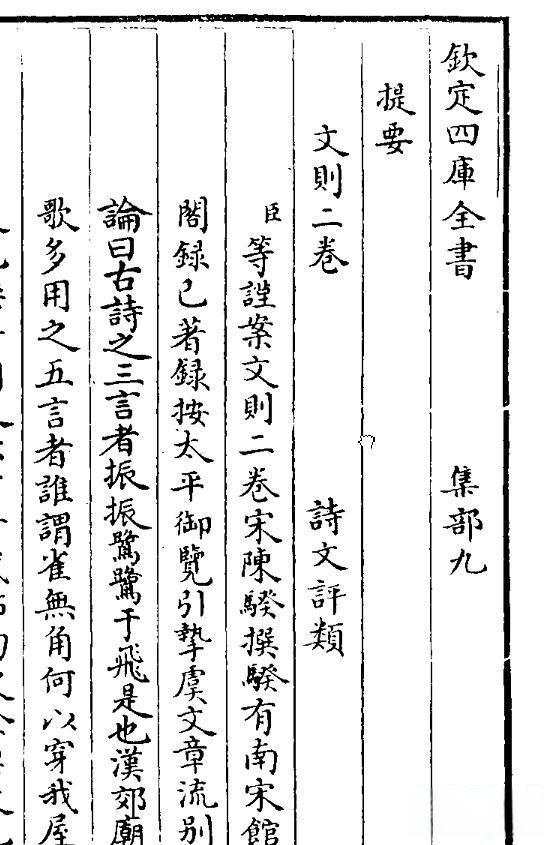 欽定四庫全書　集部九
提要
文則二卷　詩文評類
臣等謹案文則二卷宋陳騤撰騤有南宋館
閣録已著録按太平御覽引摯虞文章流别
論曰古詩之三言者振振鷺鷺于飛是也漢郊廟
歌多用之五言者誰謂雀無角何以穿我屋